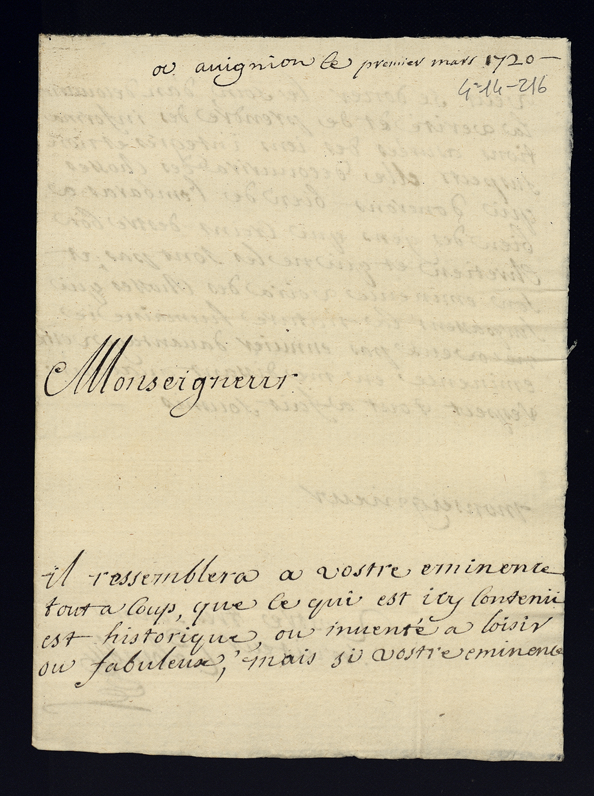 a avignion le premier mars 1720 —
4°14-216
Monseigneur
il ressemblera a vostre eminence
tout a coup, que ce qui est icy contenu
est historique, ou inventé a loisir
ou fabuleux, mais si vostre eminence